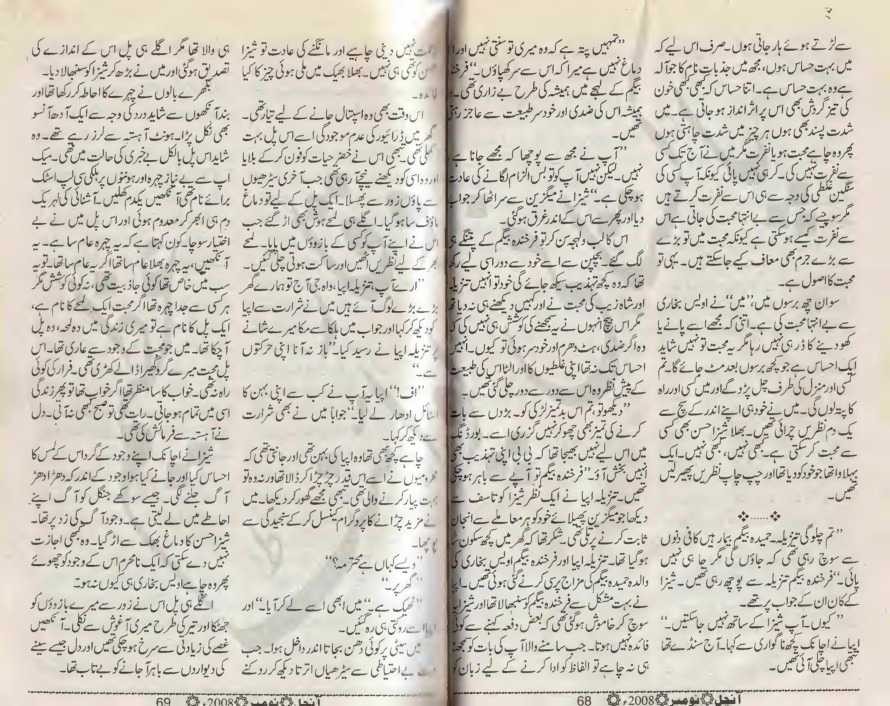 سے لڑتے ہوئے ہار جاتی ہوں۔ صرف اس لیے کہ
میں بہت حساس ہوں، مجھ میں جذبات نام کا جو آلہ
ہے وہ بہت حساس ہے۔ اتنا حساس کہ کبھی کبھی خون
کی تیز گردش بھی اس پر اثر انداز ہو جاتی ہے۔ میں
شدت پسند بھی ہوں ہر چیز میں شدت چاہتی ہوں
پھر وہ چاہے محبت ہو یا نفرت مگر میں نے آج تک کسی
سے نفرت نہیں کی۔ کر ہی نہیں پائی کیونکہ آپ کسی کی
سنگین غلطی کی وجہ سے ہی اس سے نفرت کرتے ہیں
مگر سوچیے کہ جس سے بے انتہا محبت کی جاتی ہے اس
سے نفرت کیسے ہو سکتی ہے کیونکہ محبت میں تو بڑے
سے بڑے جرم بھی معاف کیے جا سکتے ہیں۔ یہی تو
محبت کا اصول ہے۔
سو ان چھ برسوں میں، ”میں“ نے اویس بخاری
سے بے انتہا محبت کی ہے۔ اتنی کہ مجھے اسے پانے یا
کھو دینے کا ڈر ہی نہیں رہا مگر یہ محبت تو نہیں شاید
ایک احساس ہے جو کچھ برسوں بعد مٹ جائے گا۔ تم
کسی اور منزل کی طرف چل پڑو گے اور میں کسی اور راہ
کا پتہ لوں گی۔ میں نے خود ہی اپنے اندر کے سچ سے
یک دم نظریں چرائی تھیں۔ بھلا شیزا حسن بھی کسی
سے محبت کر سکتی ہے۔ کبھی نہیں، کبھی نہیں۔ ایک
بہلاوا تھا جو خود کو دیا تھا اور چپ چاپ نظریں پھیر لیں
تھیں۔
”تم چلو گی تنزیلہ۔ حمیدہ بیگم بیمار ہیں کافی دنوں
سے سوچ رہی تھی کہ جاؤں گی مگر جا ہی نہیں
پائی۔“ فرخندہ بیگم تنزیلہ سے پوچھ رہی تھیں۔ شیزا
کے کان ان کے جواب پر تھے۔
”کیوں۔ آپ شیزا کے ساتھ نہیں جا سکتیں۔“
اپیا نے اچانک کچھ ناگواری سے کہا۔ آج سنڈے تھا
تبھی اپیا چلی آئی تھیں۔
”تمہیں پتہ ہے کہ وہ میری تو سنتی نہیں اور
دماغ نہیں ہے میرا کہ اس سے سر کھپاؤں۔“ فرخندہ
بیگم کے لہجے میں ہمیشہ کی طرح بے زاری تھی۔
ہمیشہ اس کی ضدی اور خود سر طبیعت سے عاجز
تھیں۔
”آپ نے مجھ سے پوچھا کہ مجھے جانا ہے
نہیں۔ لیکن نہیں آپ کو تو بس الزام لگانے کی عادت
ہو چکی ہے۔“ شیزا نے میگزین سے سر اٹھا کر جواب
دیا اور پھر سے اس کے اندر غرق ہو گئی۔
اس کا لب و لہجہ سن کر تو فرخندہ بیگم کے پتنگے ہی
لگ گئے۔ بچپن سے اسے خود سے دور اسی لیے رکھا
تھا کہ وہ کچھ تہذیب سیکھ جائے گی خود تو انہیں تنزیلہ
اور شاہ زیب کی محبت نے اور کہیں دیکھنے ہی نہ دیا تھا
مگر اس بیچ انہوں نے یہ سمجھنے کی کوشش ہی نہیں کی کہ
وہ اگر ضدی، ہٹ دھرم اور خود سر ہوئی تو کیوں۔ انہیں
احساس تک نہ تھا اپنی غلطیوں کا اور الٹا اس کی طبیعت
کے پیش نظر وہ اس سے دور سے دور چلی گئی تھیں۔
”دیکھو تو ہم اس بدتمیز لڑکی کو۔ بڑوں سے بات
کرنے کی تمیز بھی چھو کر نہیں گزری اسے۔ بورڈنگ
میں اس لیے نہیں بھیجا تھا کہ بی بی اپنی تہذیب بھی
نہیں بخش آؤ۔“ فرخندہ بیگم تو آپے سے باہر ہو چکی
تھیں۔ تنزیلہ اپیا نے ایک نظر شیزا کو تاسف سے
دیکھا جو میگزین پھیلائے خود کو ہر معاملے سے انجان
ثابت کرنے پر تلی تھی۔ شکر تھا کہ گھر میں کچھ سکون سا
ہو گیا تھا۔ تنزیلہ اپیا اور فرخندہ بیگم اویس بخاری کی
والدہ حمیدہ بیگم کی مزاج پرسی کرنے گئی ہوئی تھیں۔ اپیا
نے بہت مشکل سے فرخندہ بیگم کو سنبھالا تھا اور شیزا یہ
سوچ کر خاموش ہو گئی تھی کہ بعض دفعہ کہنے سے کوئی
فائدہ نہیں ہوتا۔ جب سامنے والا آپ کی بات کو سمجھنا
ہی نہ چاہے تو الفاظ کو ادا کرنے کے لیے زبان کو
آنچل نومبر 2008ء 68
زحمت نہیں دینی چاہیے اور مانگنے کی عادت تو شیزا
حسن کو تھی ہی نہیں۔ بھلا بھیک میں ملی ہوئی چیز کا کیا
فائدہ۔
اس وقت بھی وہ اسپتال جانے کے لیے تیار تھی۔
گھر میں ڈرائیور کی عدم موجودگی اسے اس پل بہت
کھلی تھی۔ تبھی اس نے خضر حیات کو فون کر کے بلایا
اور وہ اسی کو دیکھنے نیچے آ رہی تھی جب آخری سیڑھیوں
سے پاؤں زور سے پھسلا۔ ایک پل کے لیے تو دماغ
ماؤف سا ہو گیا۔ اگلے ہی لمحے ہوش بھی اڑ گئے جب
اس نے اپنے آپ کو کسی کے بازوؤں میں پایا۔ لمحے
بھر کے لیے نظریں اٹھیں اور ساکت ہوتی چلی گئیں۔
”ارے آپ تنزیلہ اپیا، واہ جی آج تو ہمارے گھر
بڑے بڑے لوگ آئے ہیں میں نے شرارت سے اپیا
کو دیکھ کر کہا اور جواب میں ہلکا سا مکا میرے شانے
پر تنزیلہ اپیا نے رسید کیا۔ ”باز نہ آنا اپنی حرکتوں
سے۔“
”اف! اپیا یہ آپ نے کب سے اپنی بہن کا
اسٹائل ادھار لے لیا۔“ جواباً میں نے بھی شرارت
سے دیکھ کر کہا۔
چاہے کچھ بھی تھا وہ اپیا کی بہن تھی اور جانتی تھی کہ
محرومیوں نے اسے اس قدر چڑچڑا کر ڈالا تھا اور نہ وہ تو
بہت پیار کرنے والی تھی۔ تبھی مجھے گھور کر دیکھا۔ میں
نے مزید چڑانے کا پروگرام کینسل کر کے سنجیدگی سے
پوچھا۔
”ویسے کہاں ہے محترمہ؟“
”گھر پر۔“
”ٹھیک ہے“ میں ابھی اسے لے کر آیا۔“ اور
اپیا اسے روکتی ہی رہ گئیں۔
میں سیٹی پر کوئی دھن بجاتا اندر داخل ہوا۔ جب
بے احتیاطی سے سیڑھیاں اترتا دیکھ کر روکنے
ہی والا تھا مگر اگلے ہی پل اس کے اندازے کی
تصدیق ہو گئی اور میں نے بڑھ کر شیزا کو سنبھالا دیا۔
بکھرے بالوں نے چہرے کا احاطہ کر رکھا تھا اور
بند آنکھوں سے شاید درد کی وجہ سے ایک آدھ آنسو
بھی نکل پڑا۔ ہونٹ آہستہ سے لرز رہے تھے۔ وہ
شاید اس پل بالکل بے خبری کی حالت میں تھی۔ میک
اپ سے بے نیاز چہرہ اور ہونٹوں پر ہلکی سی لپ اسٹک
برائے نام تھی آنکھیں یکدم کھلیں۔ آشنائی کی لہر یک
دم ہی ابھر کر معدوم ہوئی اور اس پل میں نے بے
اختیار سوچا۔ کون کہتا ہے کہ یہ چہرہ عام سا ہے۔ یہ
آنکھیں، یہ چہرہ بھلا عام سا تھا اگر یہ عام سا تھا۔ تو یہ
سب میں خاص تھا کوئی جاذبیت تھی، نہ کوئی کوشش مگر
ہر کسی سے جدا چہرہ تھا اگر محبت ایک لمحے کا نام ہے،
ایک پل کا نام ہے تو میری زندگی میں وہ لمحہ، وہ پل
آ چکا تھا۔ میں جو محبت کے وجود سے عاری تھا۔ اس
پل محبت میرے گرد گھیرا ڈالے کھڑی تھی۔ فرار کی کوئی
راہ نہ تھی۔ خواب کا سا منظر تھا اگر خواب تھا تو پھر زندگی
اسی میں تمام ہو جاتی۔ رات تھی تو صبح کبھی نہ آتی۔ دل
نے آہستہ سے فرمائش کی تھی۔
شیزا نے اچانک اپنے وجود کے گرد اس کے لمس کا
احساس کیا اور جانے کیا ہوا وجود کے اندر کہ دھڑا دھڑ
آگ جلنے لگی۔ جیسے سوکھے جنگل کو آگ اپنے
احاطے میں لے لیتی ہے۔ وجود آگ کی زد پر تھا۔
شیزا حسن کا دماغ بھک سے اڑ گیا۔ وہ کبھی اجازت
نہیں دے سکتی کہ ایک نامحرم اس کے وجود کو چھوئے
پھر وہ چاہے اویس بخاری ہی کیوں نہ ہو۔
اگلے ہی پل اس نے زور سے میرے بازوؤں کو
جھٹکا اور تیر کی طرح میری آغوش سے نکلی۔ آنکھیں
غصے کی زیادتی سے سرخ ہو چکی تھیں اور دل جیسے سینے
کی دیواروں سے باہر آ جانے کو بے تاب تھا۔
آنچل نومبر 2008ء 69